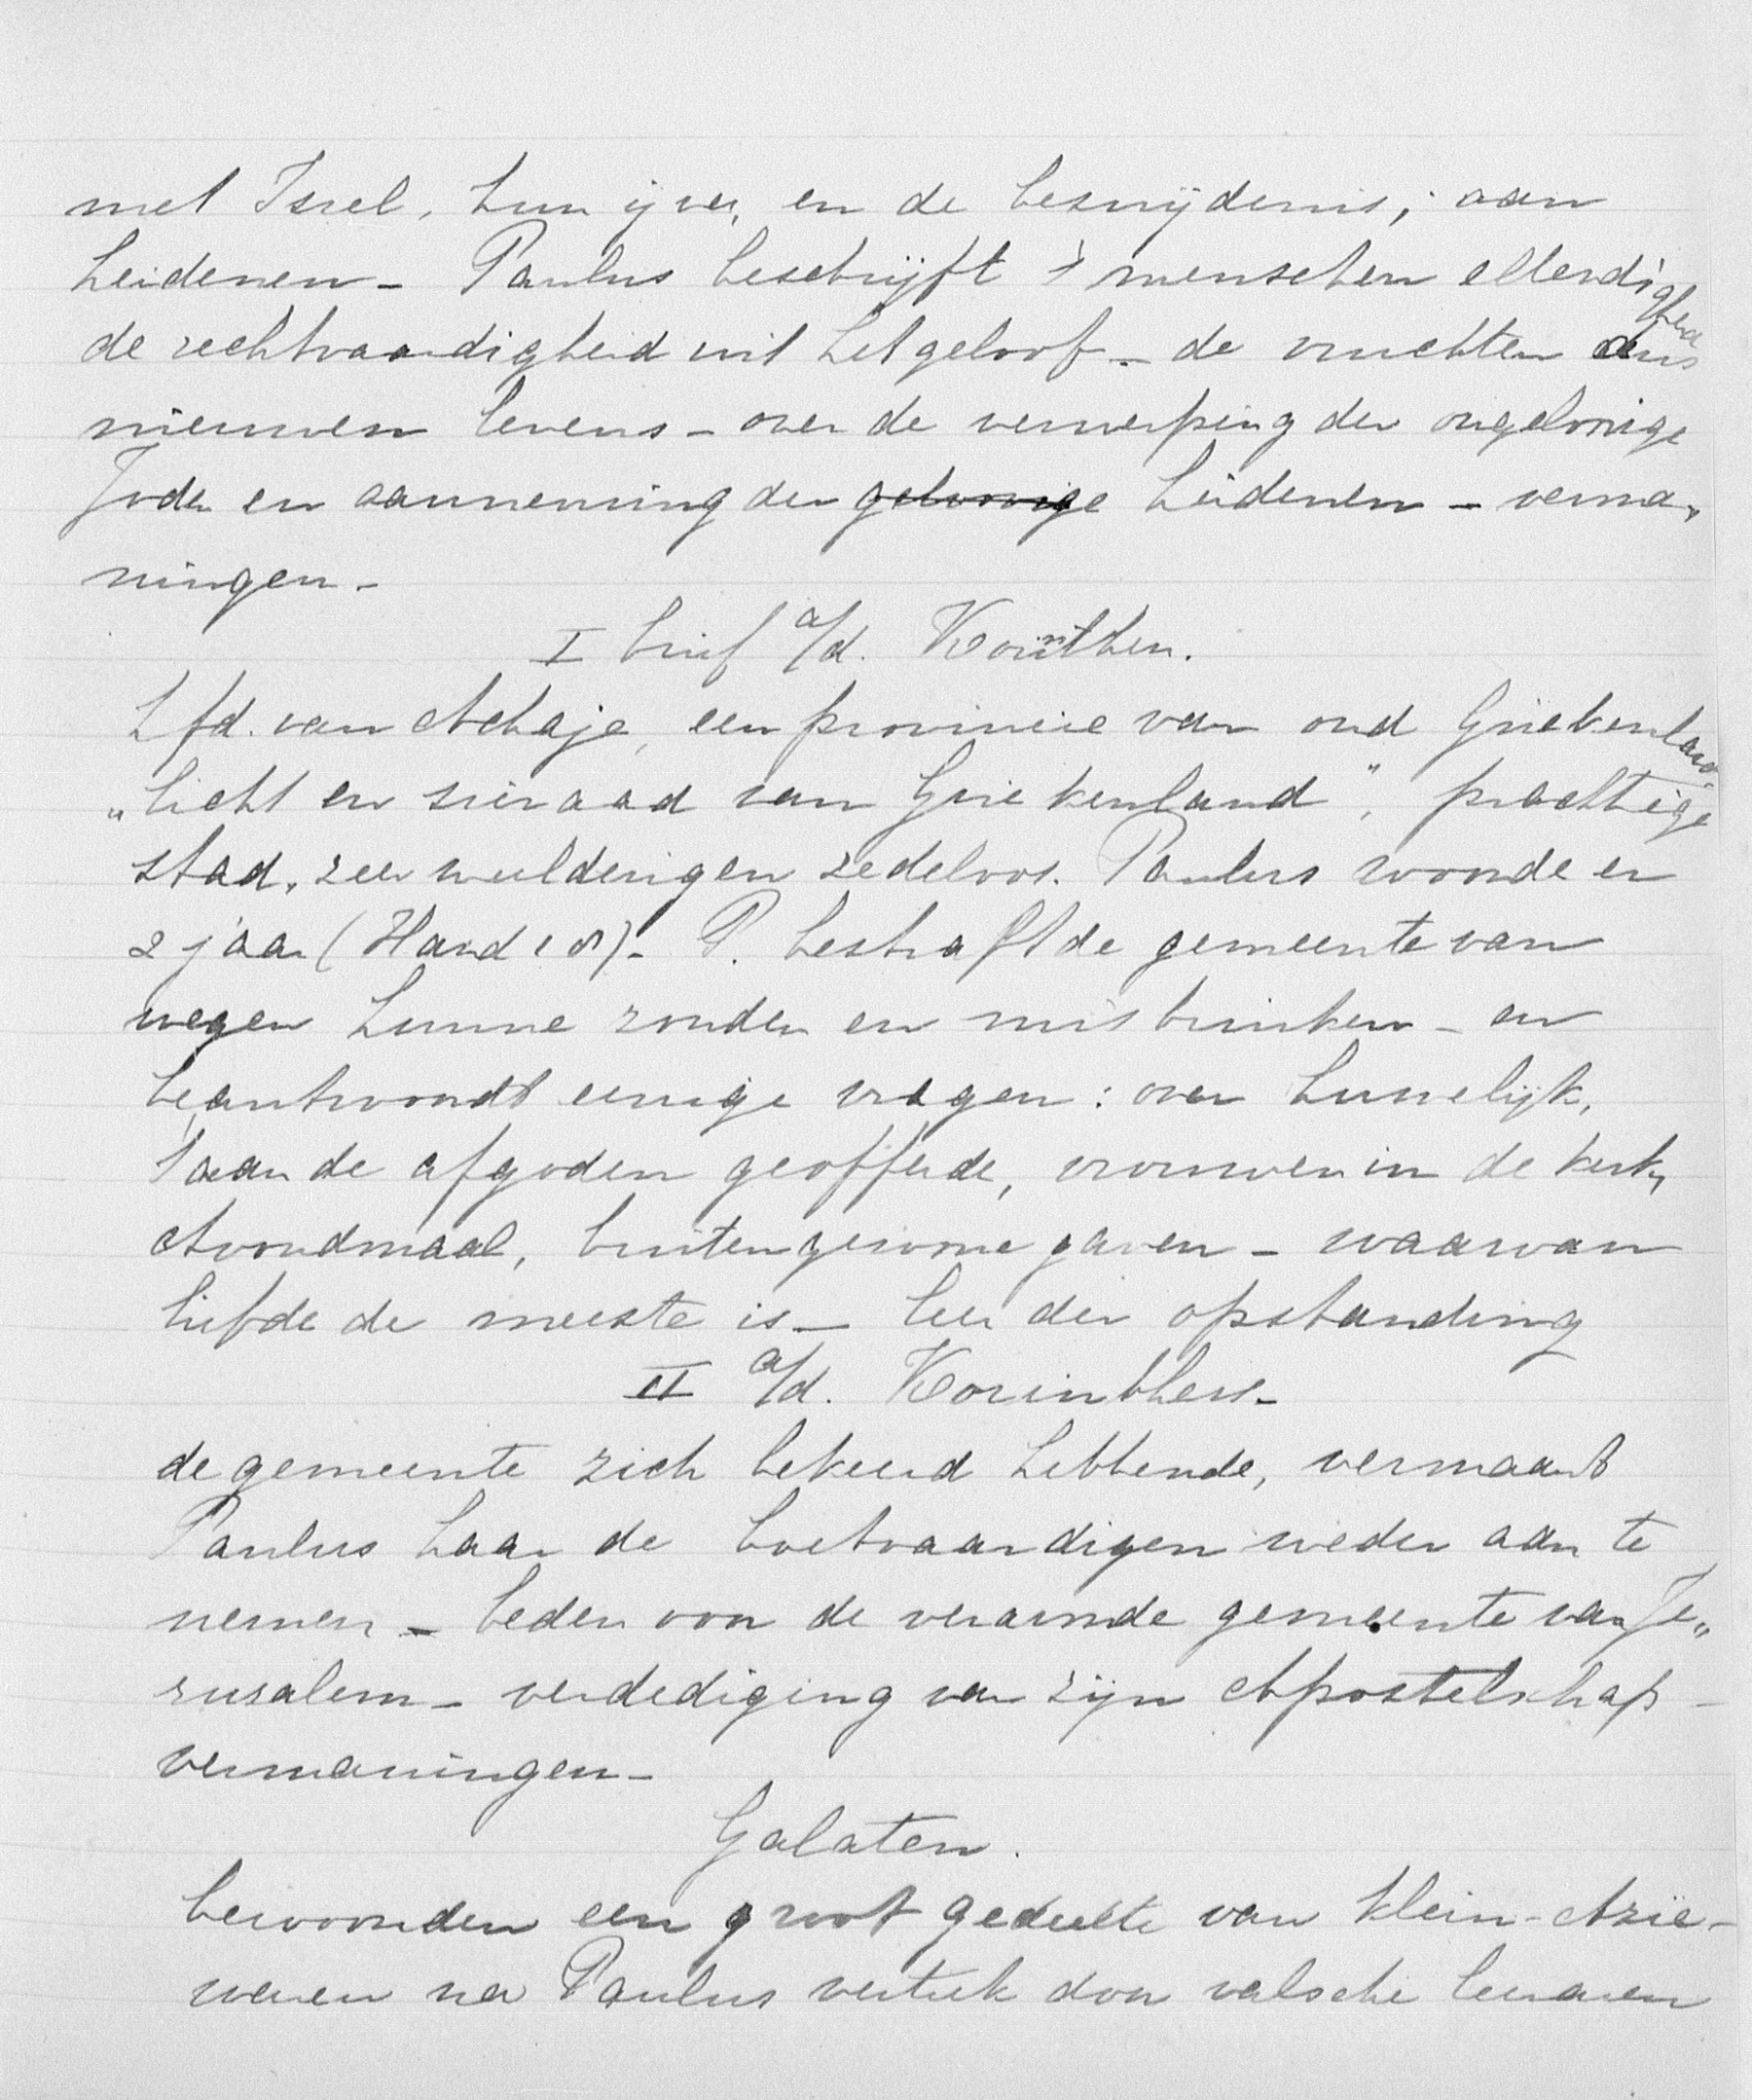 met Isrel, hun ijver, en de besnijdenis; aan
heidenen - Paulus beschrijft 's menschen ellendigheid
de rechtvaardigheid uit het geloof - de vruchten des
nieuwen levens - over de verwerping der ongelovige
Joden en aanneming der gelovige heidenen - verma-
ningen -
I brief a/d. Korinthen.
Hfd. van Achaje, een provincie van oud Griekenland
"licht en sieraad van Griekenland", prachtige
stad, zeer weelderig en zedeloos. Paulus woonde er
2 jaar (Hand 18) - P. bestraft de gemeente van
wegen hunne zonden en misbruiken - en
beantwoordt eenige vragen: over huwelijk,
't aan de afgoden geofferde, vrouwen in de kerk,
Avondmaal, buitengewone gaven - waarvan
liefde de meeste is - leer der opstanding
II a/d. Korinthers -
de gemeente zich bekeerd hebbende, vermaant
Paulus haar de boetvaardigen weder aan te
nemen - beden voor de verarmde gemeente van Je-
ruzalem - verdediging van zijn Apostelschap -
vermaningen -
Galaten.
bewoonden een groot gedeelte van Klein-Azië -
waren na Paulus vertrek door valsche leeraren